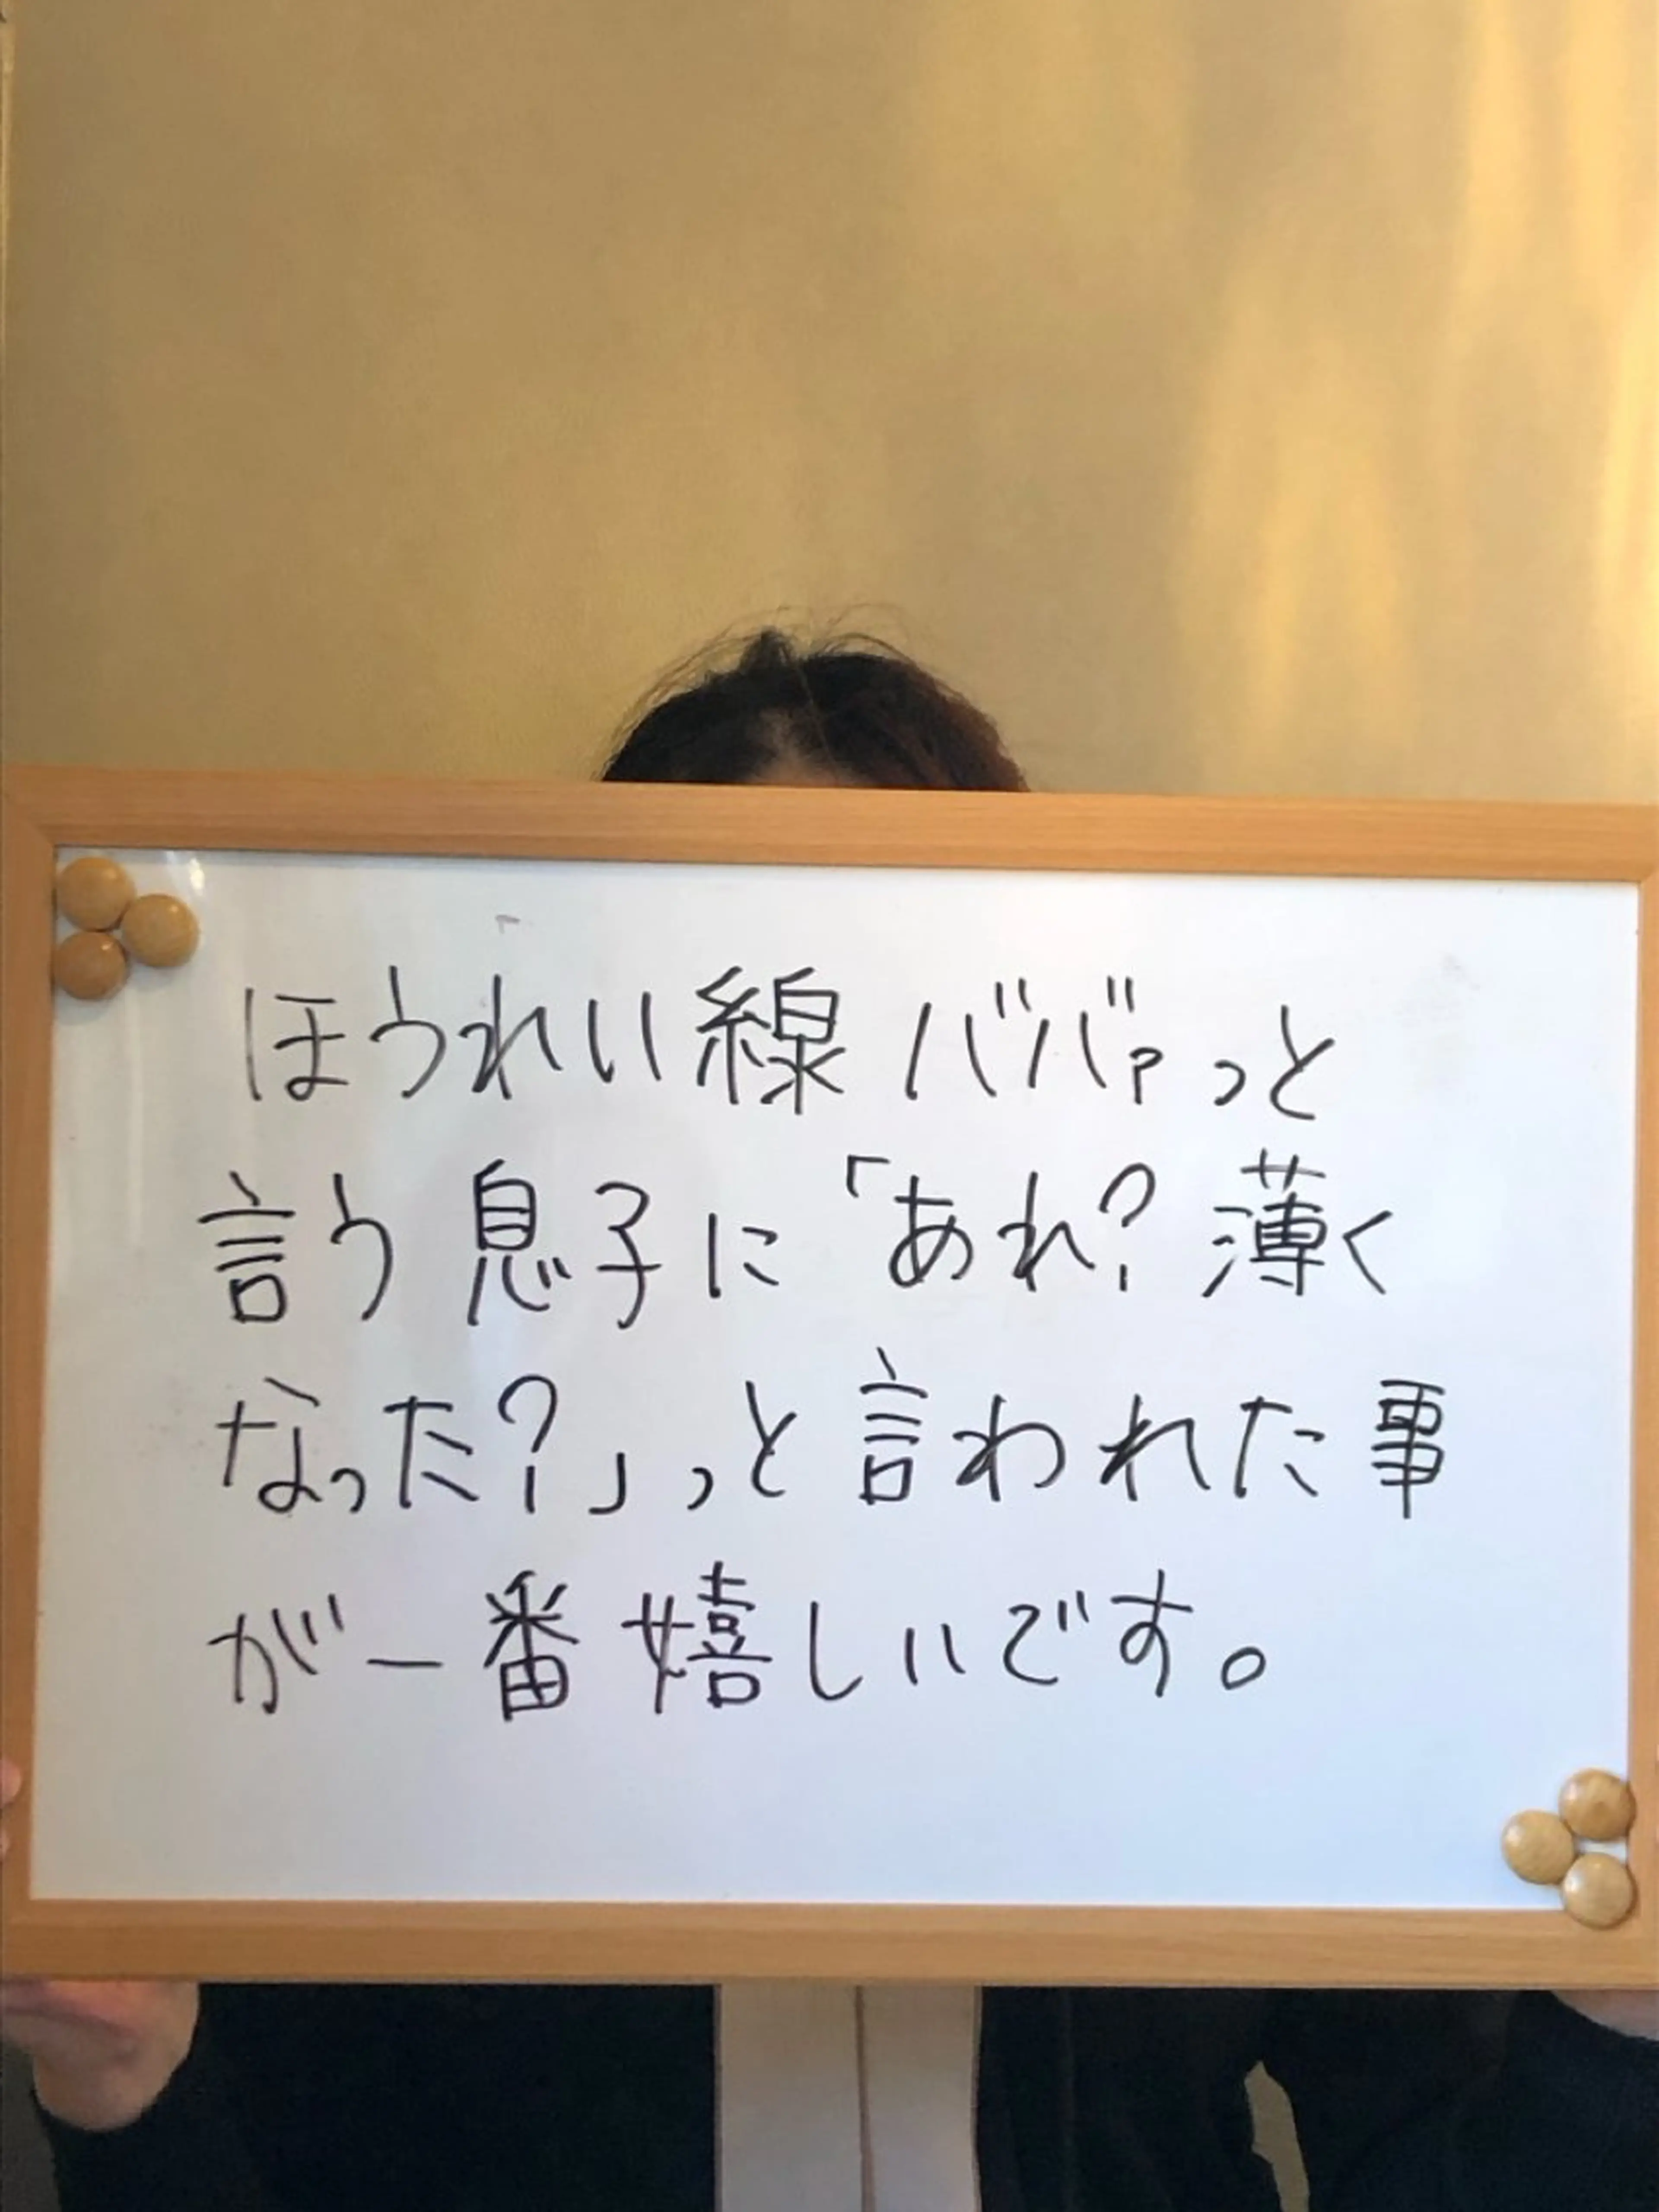 ほうれい線ババァっと
言う息子に「あれ?薄く
なった?」っと言われた事
が一番嬉しいです。